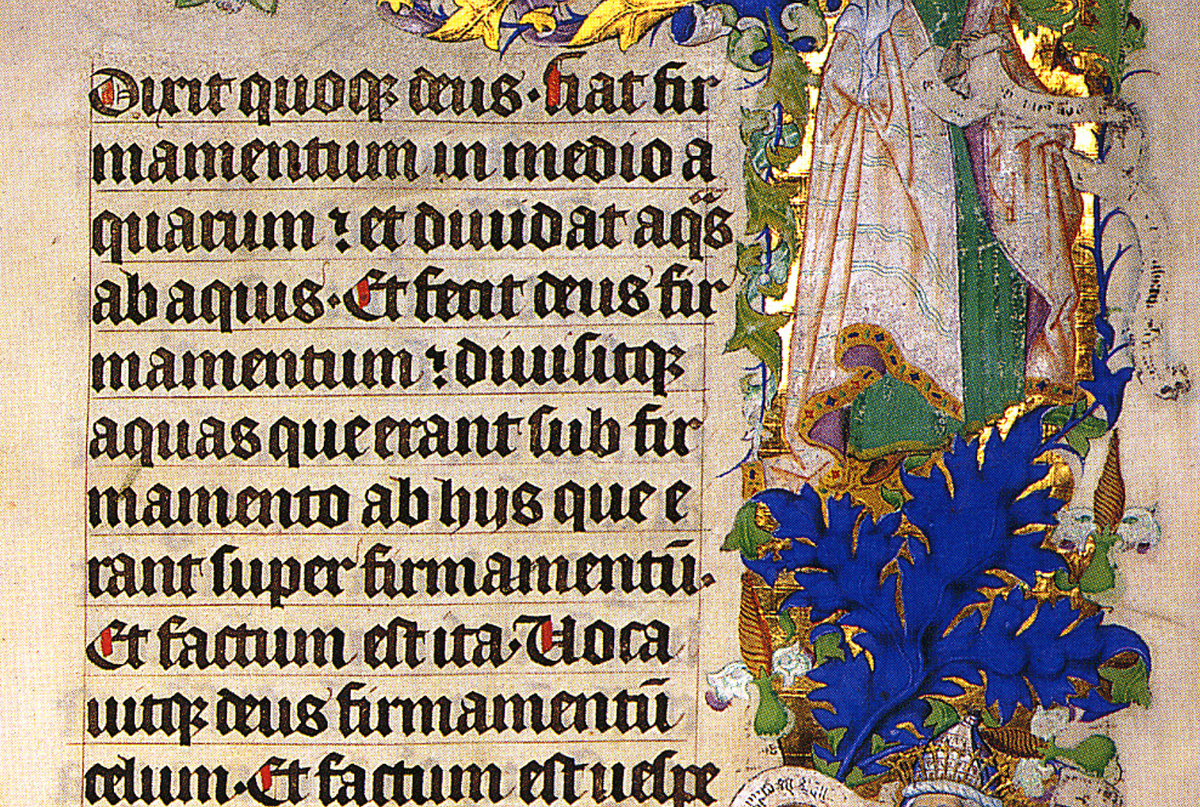 Dixit quoqꝫ deus· fiat fir
mamentum in medio a
quarum ⁊ et diuidat aqs̄
ab aquis· Et fecit deus fir
mamentum ⁊ diuisitqꝫ
aquas que erant sub fir
mamento ab hijs que e
rant super firmamentū·
Et factum est ita· Uoca
uitqꝫ deus firmamentū
celum· Et factum est uespe